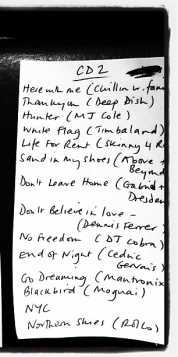 CD2
Here with me (Chillin w. fam
Thankyou (Deep Dish)
Hunter (MJ Cole)
White Flag (Timbaland)
Life For Rent (Skinny 4 R
Sand in my Shoes (Above +
Beyond
Don't Leave Home (Gabriel +
Dresden
Don't Believe in love -
(Dennis Ferrer)
No Freedom (DJ Cobra)
End of Night (Cedric
Gervais)
Go Dreaming (Mantronix
Blackbird (Moguai)
NYC
Northern Skies (Rollo)